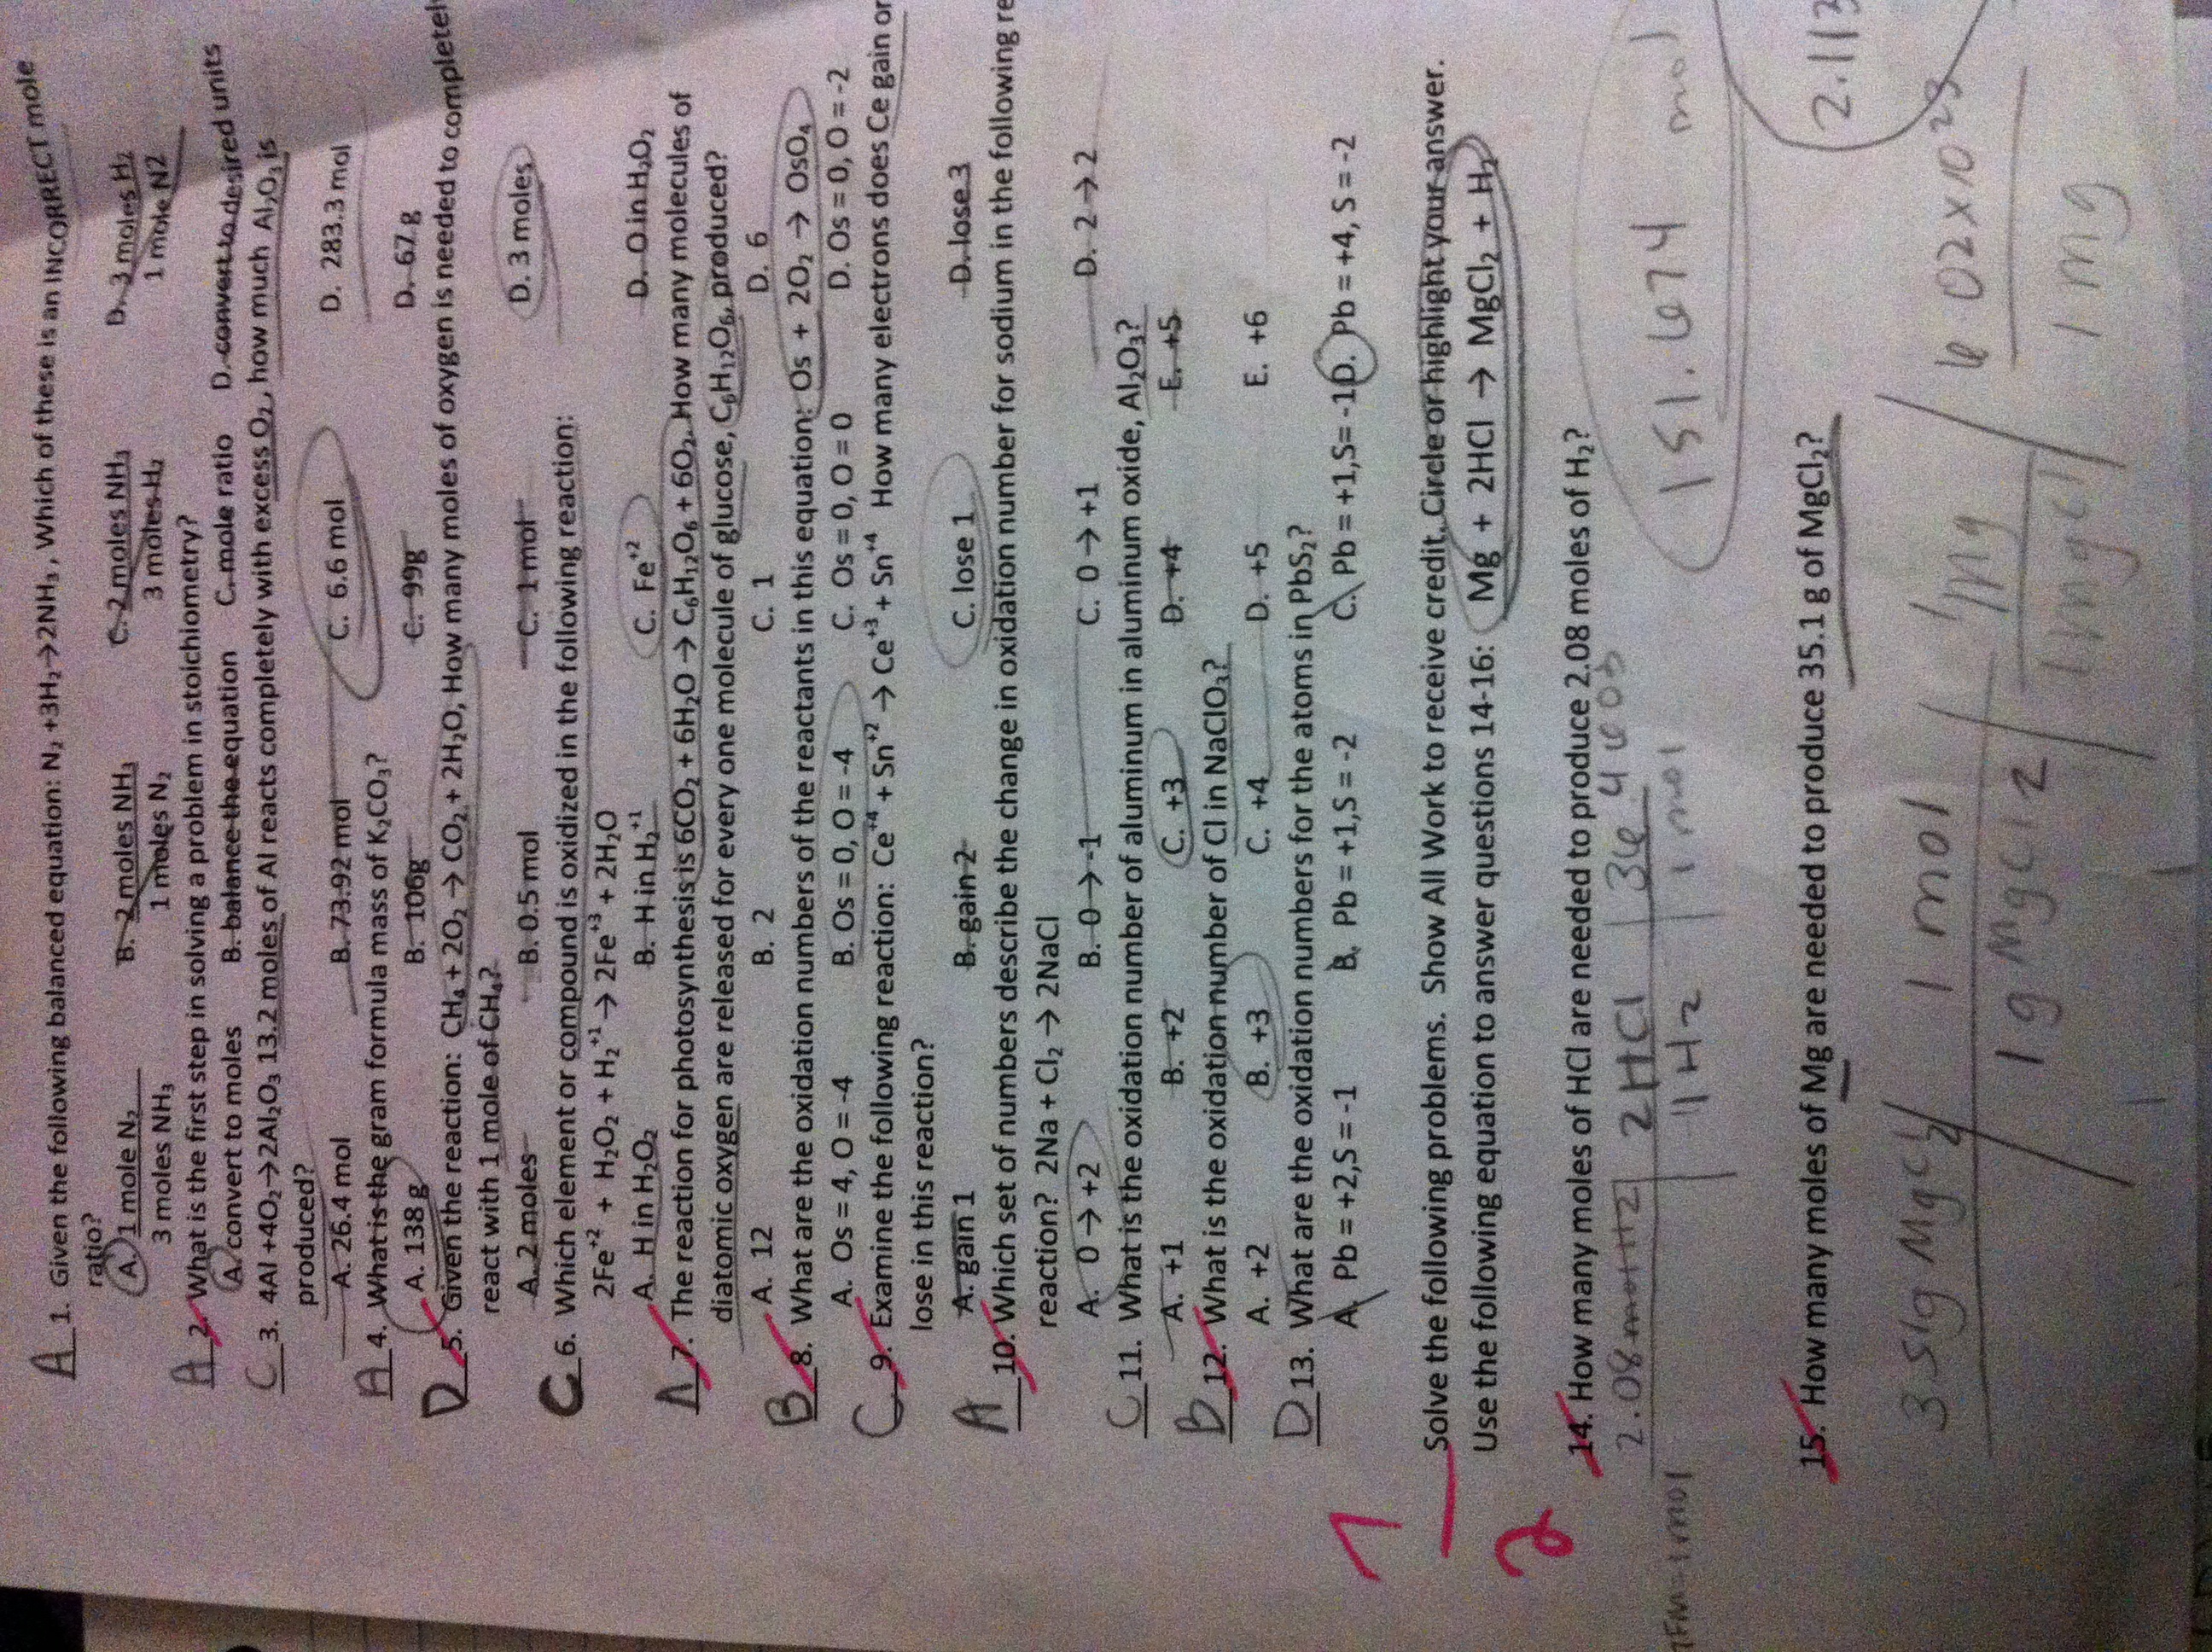 A 1. Given the following balanced equation: N₂ +3H₂→2NH₃, Which of these is an INCORRECT mole
ratio?
A. 1 mole N₂ B. 2 moles NH₃ C. 2 moles NH₃ D. 3 moles H₂
3 moles NH₃ 1 moles N₂ 3 moles H₂ 1 mole N2
A 2. What is the first step in solving a problem in stoichiometry?
A. convert to moles B. balance the equation C. mole ratio D. convert to desired units
C 3. 4Al +4O₂→2Al₂O₃ 13.2 moles of Al reacts completely with excess O₂, how much Al₂O₃ is
produced?
A. 26.4 mol B. 73.92 mol C. 6.6 mol D. 283.3 mol
A 4. What is the gram formula mass of K₂CO₃?
A. 138 g B. 106g C. 99g D. 67 g
D 5. Given the reaction: CH₄ + 2O₂ → CO₂ + 2H₂O, How many moles of oxygen is needed to completel
react with 1 mole of CH₄?
A. 2 moles B. 0.5 mol C. 1 mol D. 3 moles
C 6. Which element or compound is oxidized in the following reaction:
2Fe⁺² + H₂O₂ + H₂⁺¹ → 2Fe⁺³ + 2H₂O
A. H in H₂O₂ B. H in H₂⁺¹ C. Fe⁺² D. O in H₂O₂
A 7. The reaction for photosynthesis is 6CO₂ + 6H₂O → C₆H₁₂O₆ + 6O₂. How many molecules of
diatomic oxygen are released for every one molecule of glucose, C₆H₁₂O₆, produced?
A. 12 B. 2 C. 1 D. 6
B 8. What are the oxidation numbers of the reactants in this equation: Os + 2O₂ → OsO₄
A. Os = 4, O = -4 B. Os = 0, O = -4 C. Os = 0, O = 0 D. Os = 0, O = -2
C 9. Examine the following reaction: Ce⁺⁴ + Sn⁺² → Ce⁺³ + Sn⁺⁴ How many electrons does Ce gain or
lose in this reaction?
A. gain 1 B. gain 2 C. lose 1 D. lose 3
A 10. Which set of numbers describe the change in oxidation number for sodium in the following re
reaction? 2Na + Cl₂ → 2NaCl
A. 0 → +2 B. 0 → -1 C. 0 → +1 D. 2 → 2
C 11. What is the oxidation number of aluminum in aluminum oxide, Al₂O₃?
A. +1 B. +2 C. +3 D. +4 E. +5
B 12. What is the oxidation number of Cl in NaClO₃?
A. +2 B. +3 C. +4 D. +5 E. +6
D 13. What are the oxidation numbers for the atoms in PbS₂?
A. Pb = +2,S = -1 B. Pb = +1,S = -2 C. Pb = +1,S= -1 D. Pb = +4, S = -2
7
Solve the following problems. Show All Work to receive credit. Circle or highlight your answer.
Use the following equation to answer questions 14-16: Mg + 2HCl → MgCl₂ + H₂
2
14. How many moles of HCl are needed to produce 2.08 moles of H₂?
2.08 mol H2 2HCl 36.4603
1 H2 1 mol
151.674 mol
15. How many moles of Mg are needed to produce 35.1 g of MgCl₂?
2.113
351g MgCl2 1 mol 1mg 6 02x10²³
1g MgCl2 1mgcl 1 mg